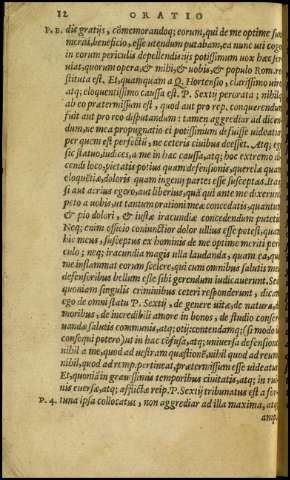 12 ORATIO
P. 2. dis gratijs, cõmemorandoq; eorum, qui de me optime
merui, beneficio, esse utendum putabam, ea nunc uti cogo
in eorum periculis depellendis: ijs potissimum uox hæc ser
uiat, quorum opera, & mihi, & uobis, & populo Rom. re
stituta est. Et, quamquam a Q. Hortensio, clarissimo uiro
atq; eloquentissimo caussa est. P. Sextij perorata; nihilq;
ab eo prætermissum est, quod aut pro rep. conquerendum
fuit, aut pro reo disputandum: tamen aggrediar ad dicen
dum, ne mea propugnatio ei potissimum defuisse uideatur
per quem est perfectũ, ne ceteris ciuibus deesset. Atq; ego
sic statuo, iudices, a me in hac caussa, atq; hoc extremo di
cendi loco, pietatis potius quam defensionis, querelæ quam
eloquẽtiæ, doloris quam ingenij partes esse susceptas. Itaq;
si aut acrius egero, aut liberius, quã qui ante me dixerunt
peto a uobis, ut tantum orationi meæ concedatis, quantum
& pio dolori, & iustæ iracundiæ concedendum putetis.
Neq; enim officio coniunctior dolor ullius esse potest, quam
hic meus, susceptus ex hominis de me optime meriti peri
culo; neq; iracundia magis ulla laudanda, quam ea, quæ
me inflammat eorum scelere, qui cum omnibus salutis meæ
defensoribus bellum esse sibi gerendum iudicauerunt. Sed
quoniam singulis criminibus ceteri responderunt; dicam
ego de omni statu P. Sextij, de genere uitæ, de natura, de
moribus, de incredibili amore in bonos, de studio conser
uandæ salutis communis, atq; otij: contendamq; (si modo id
consequi potero) ut in hac cõfusa, atq; uniuersa defensione
nihil a me, quod ad uestram quæstionẽ, nihil quod ad reum
nihil, quod ad remp. pertineat, prætermissum esse uideatur
Et, quoniã in grauissimis temporibus ciuitatis, atq; in rui
nis euersæ, atq; afflictæ reip. P. Sextij tribunatus est a for
P. 4. tuna ipsa collocatus; non aggrediar ad illa maxima, atq;
amp